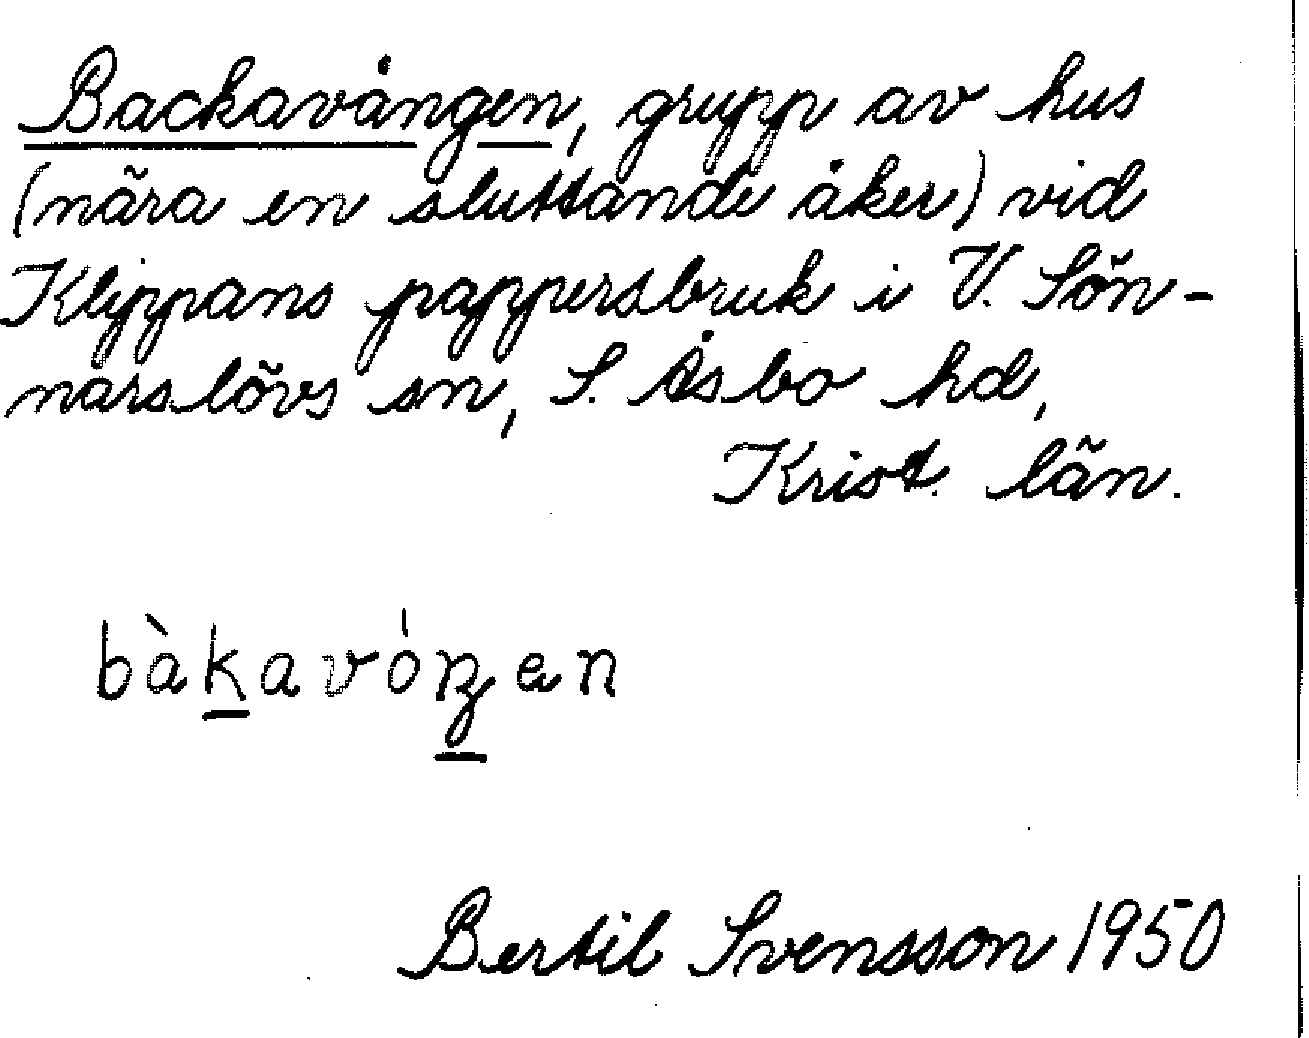 Backavången, grupp av hus
(nära en sluttande åker) vid
Klippans pappersbruk i V. Sön-
narslövs sn, S. Åsbo hd,
Krist. län.
bàkavóŋen
Bertil Svensson 1950